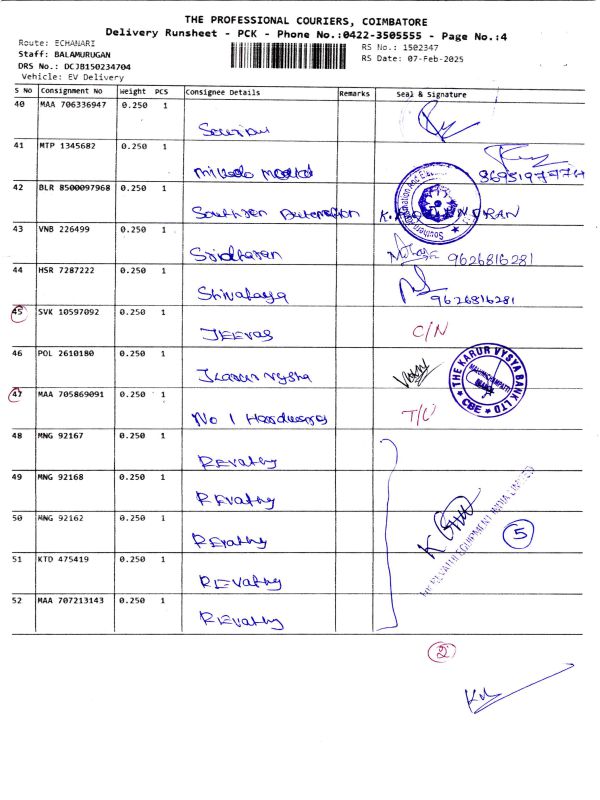 THE PROFESSIONAL COURIERS, COIMBATORE
Delivery Runsheet - PCK - Phone No.:0422-3505555 - Page No.:4
Route: ECHANARI
RS No.: 1502347
Staff: BALAMURUGAN
RS Date: 07-Feb-2025
DRS No.: DCJB150234704
Vehicle: EV Delivery
S No Consignment No Weight PCS Consignee Details Remarks Seal & Signature
40 MAA 706336947 0.250 1
41 MTP 1345682 0.250 1
42 BLR 8500097968 0.250 1 Southern Automation
43 VNB 226499 0.250 1 Sridharan 9626816281
44 HSR 7287222 0.250 1 Shivalaya 9626816281
45 SVK 10597092 0.250 1 JEEVAS C/N
46 POL 2610180 0.250 1 Vysha
THE KARUR VYSYA BANK LTD
CBE
47 MAA 705869091 0.250 1 No 1 Hardwares
48 MNG 92167 0.250 1 REvathy
49 MNG 92168 0.250 1 REvathy
50 MNG 92162 0.250 1 REvathy
51 KTD 475419 0.250 1 REvathy
52 MAA 707213143 0.250 1 REvathy
EQUIPMENT INDIA LIMITED
5
2